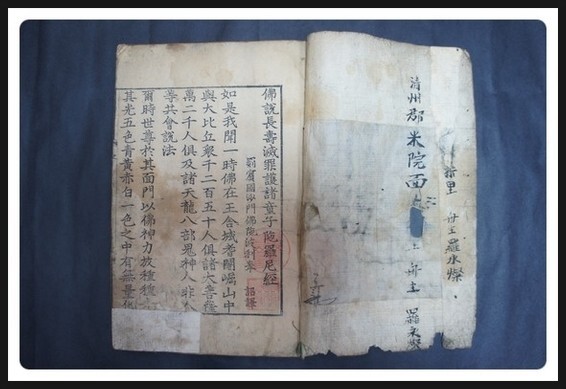 清州郡米院面
冊主羅
佛說長壽滅罪護諸童子陁羅尼經
罽賓國沙門佛陁波利奉 詔譯
如是我聞一時佛在王舍城耆闍崛山中
與大比丘衆千二百五十人俱諸大菩薩
萬二千人俱及諸天龍八部鬼神人非人
等共會說法
爾時世尊於其面門以佛神力放種種
其光五色靑黃赤白一色之中有無量化